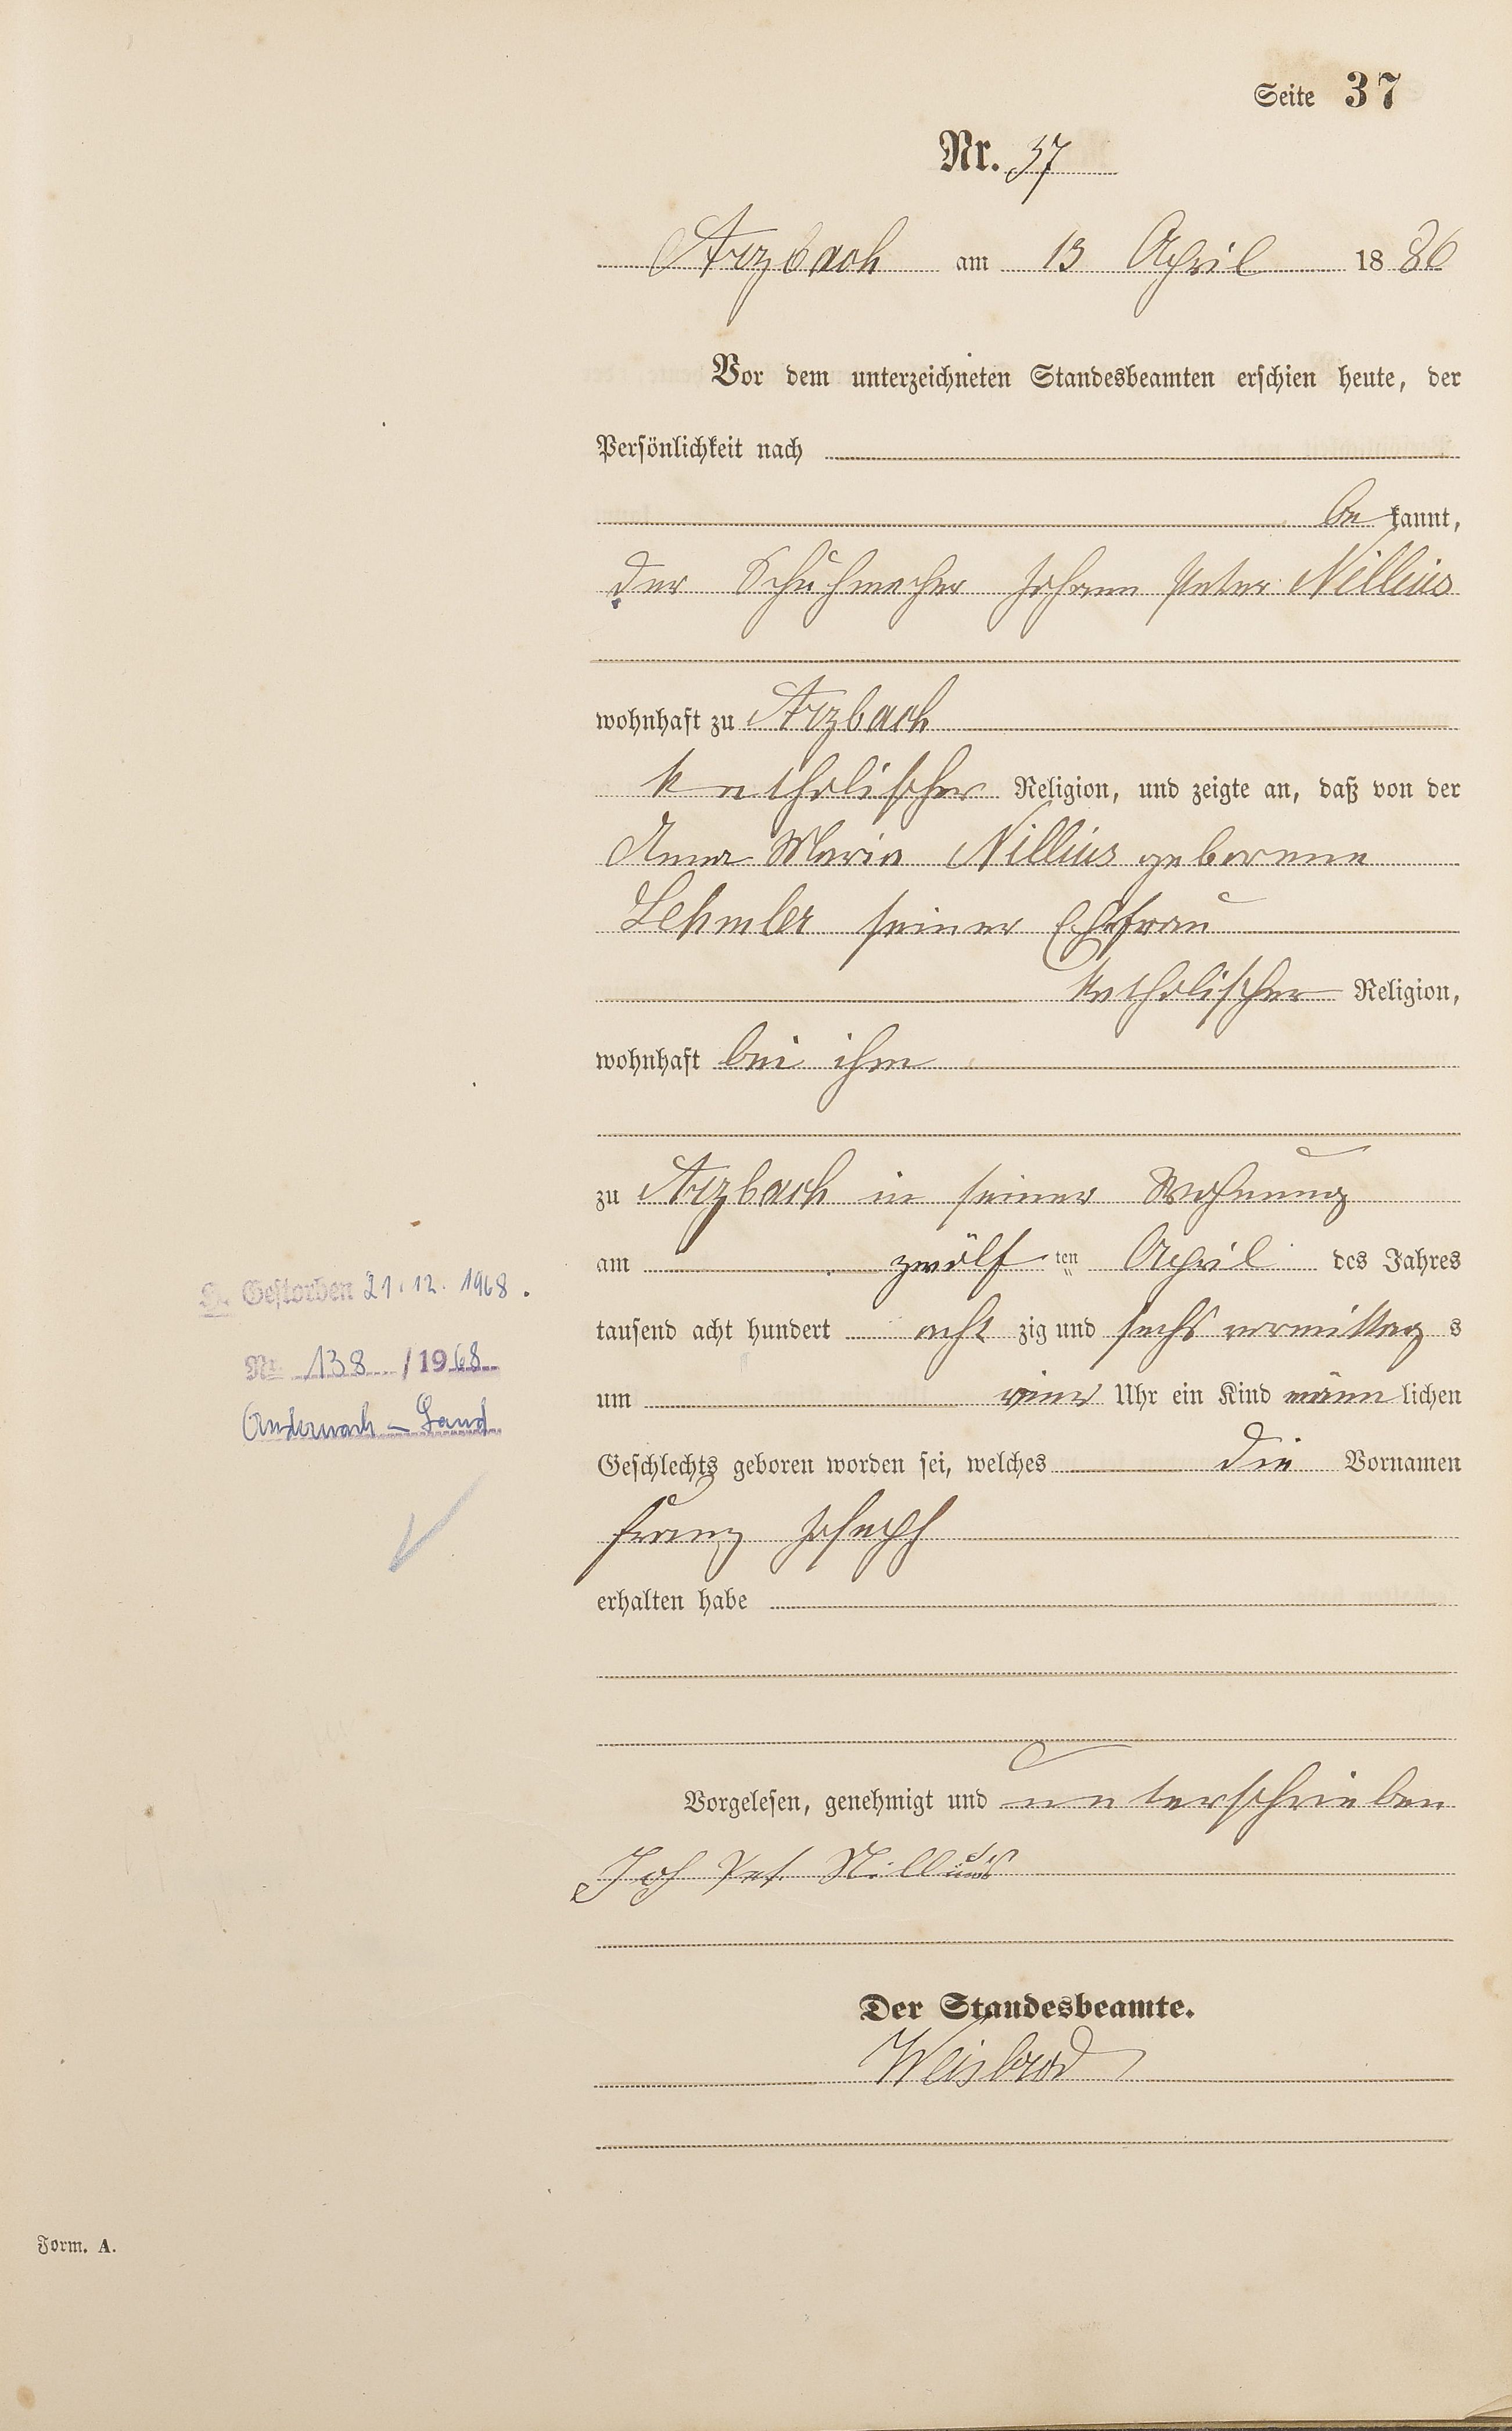 Seite 37
Nr. 37
Arzbach am 13 April 1886
Vor dem unterzeichneten Standesbeamten erschien heute, der
Persönlichkeit nach
be kannt,
der Schuhmacher Johann Peter Nillius
wohnhaft zu Arzbach
katholischer Religion, und zeigte an, daß von der
Anna Maria Nillius geborene
Lehmler seiner Ehefrau
katholischer Religion,
wohnhaft bei ihm
zu Arzbach in seiner Wohnung
am zwölf ten April des Jahres
tausend acht hundert acht zig und sechs vormittag s
um Uhr ein Kind männ lichen
Geschlechts geboren worden sei, welches die Vornamen
Franz Joseph
erhalten habe
Gestorben 21.12.1968.
Nr. 138 / 1968
Andernach - Land
Vorgelesen, genehmigt und unterschrieben
Joh Pet. Nillius
Der Standesbeamte.
Weisbrod
Form. A.